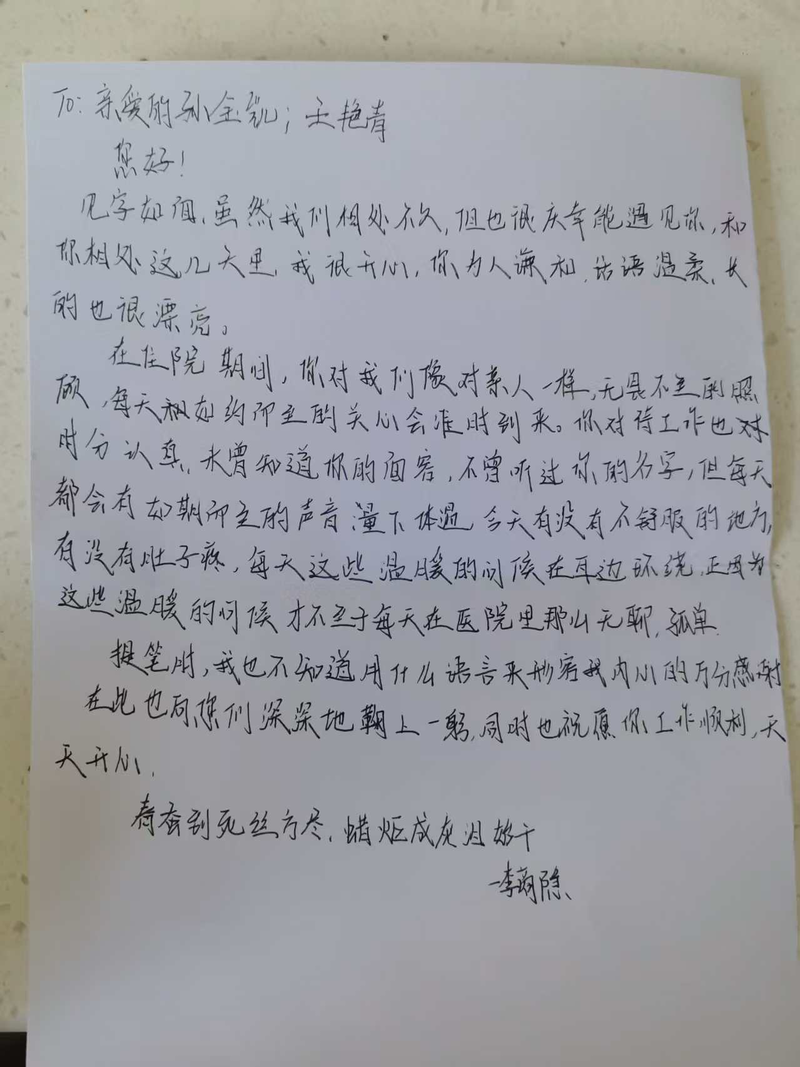 To: 亲爱的孙金凯；王艳青
您好！
见字如面，虽然我们相处不久，但也很庆幸能遇见你，和
你相处这几天里，我很开心，你为人谦和，话语温柔，长
的也很漂亮。
在住院期间，你对我们像对亲人一样，无畏不至的照
顾，每天都如约而至的关心会准时到来。你对待工作也
时分认真，未曾知道你的面容，不曾听过你的名字，但每天
都会有如期而至的声音，量下体温，今天有没有不舒服的地方，
有没有肚子疼，每天这些温暖的问候在耳边环绕，正因为
这些温暖的问候才不至于每天在医院里那么无聊，孤单.
提笔时，我也不知道用什么语言来形容我内心的万分感谢
在此也向您们深深地鞠上一躬，同时也祝愿你工作顺利，天
天开心.
春蚕到死丝方尽，蜡炬成灰泪始干
—李商隐